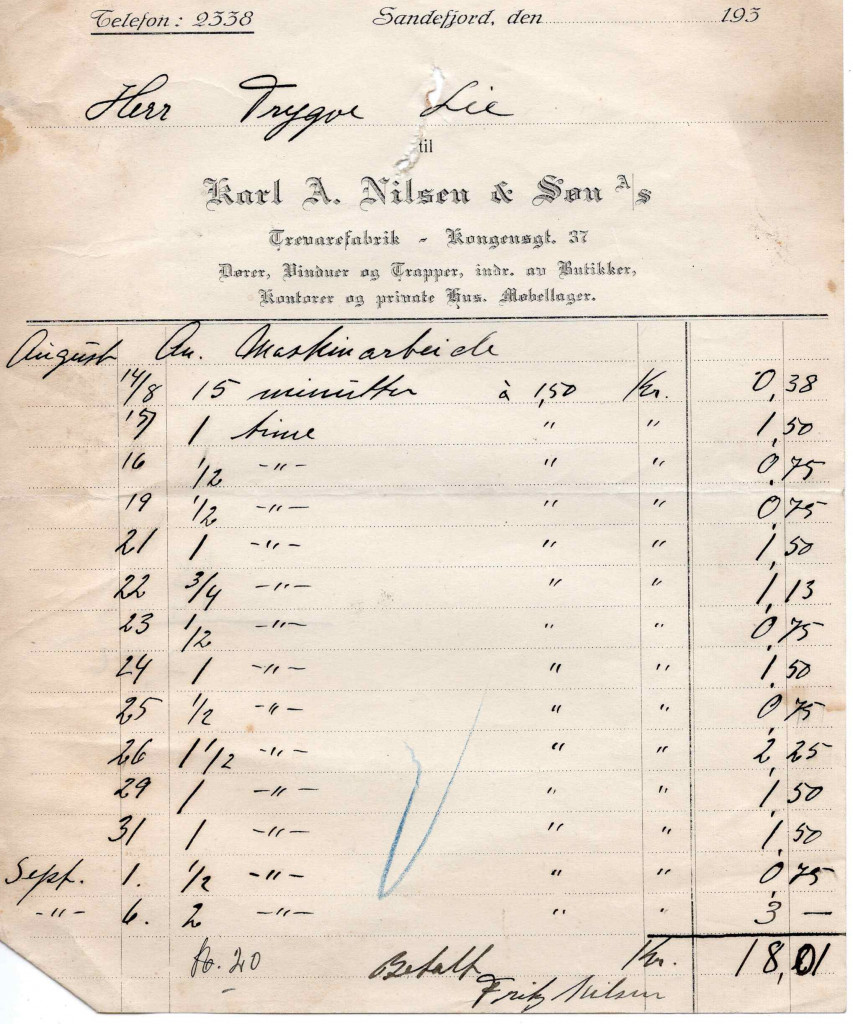 Telefon: 2338 Sandefjord, den 193
Herr Trygve Lie
til
Karl A. Nilsen & Søn A/s
Trevarefabrik - Kongensgt. 37
Dører, Vinduer og Trapper, indr. av Butikker,
Kontorer og private Hus. Møbellager.
August An. Maskinarbeide
14/8 15 minutter à 1,50 Kr. 0,38
15/ 1 time " " 1,50
16 1/2 -"- " " 0,75
19 1/2 -"- " " 0,75
21 1 -"- " " 1,50
22 3/4 -"- " " 1,13
23 1/2 -"- " " 0,75
24 1 -"- " " 1,50
25 1/2 -"- " " 0,75
26 1 1/2 -"- " " 2,25
29 1 -"- " " 1,50
31 1 -"- " " 1,50
Sept. 1. 1/2 -"- " " 0,75
-"- 6. 2 -"- " " 3 —
20 Betalt Kr. 18,01
Fritz Nilsen